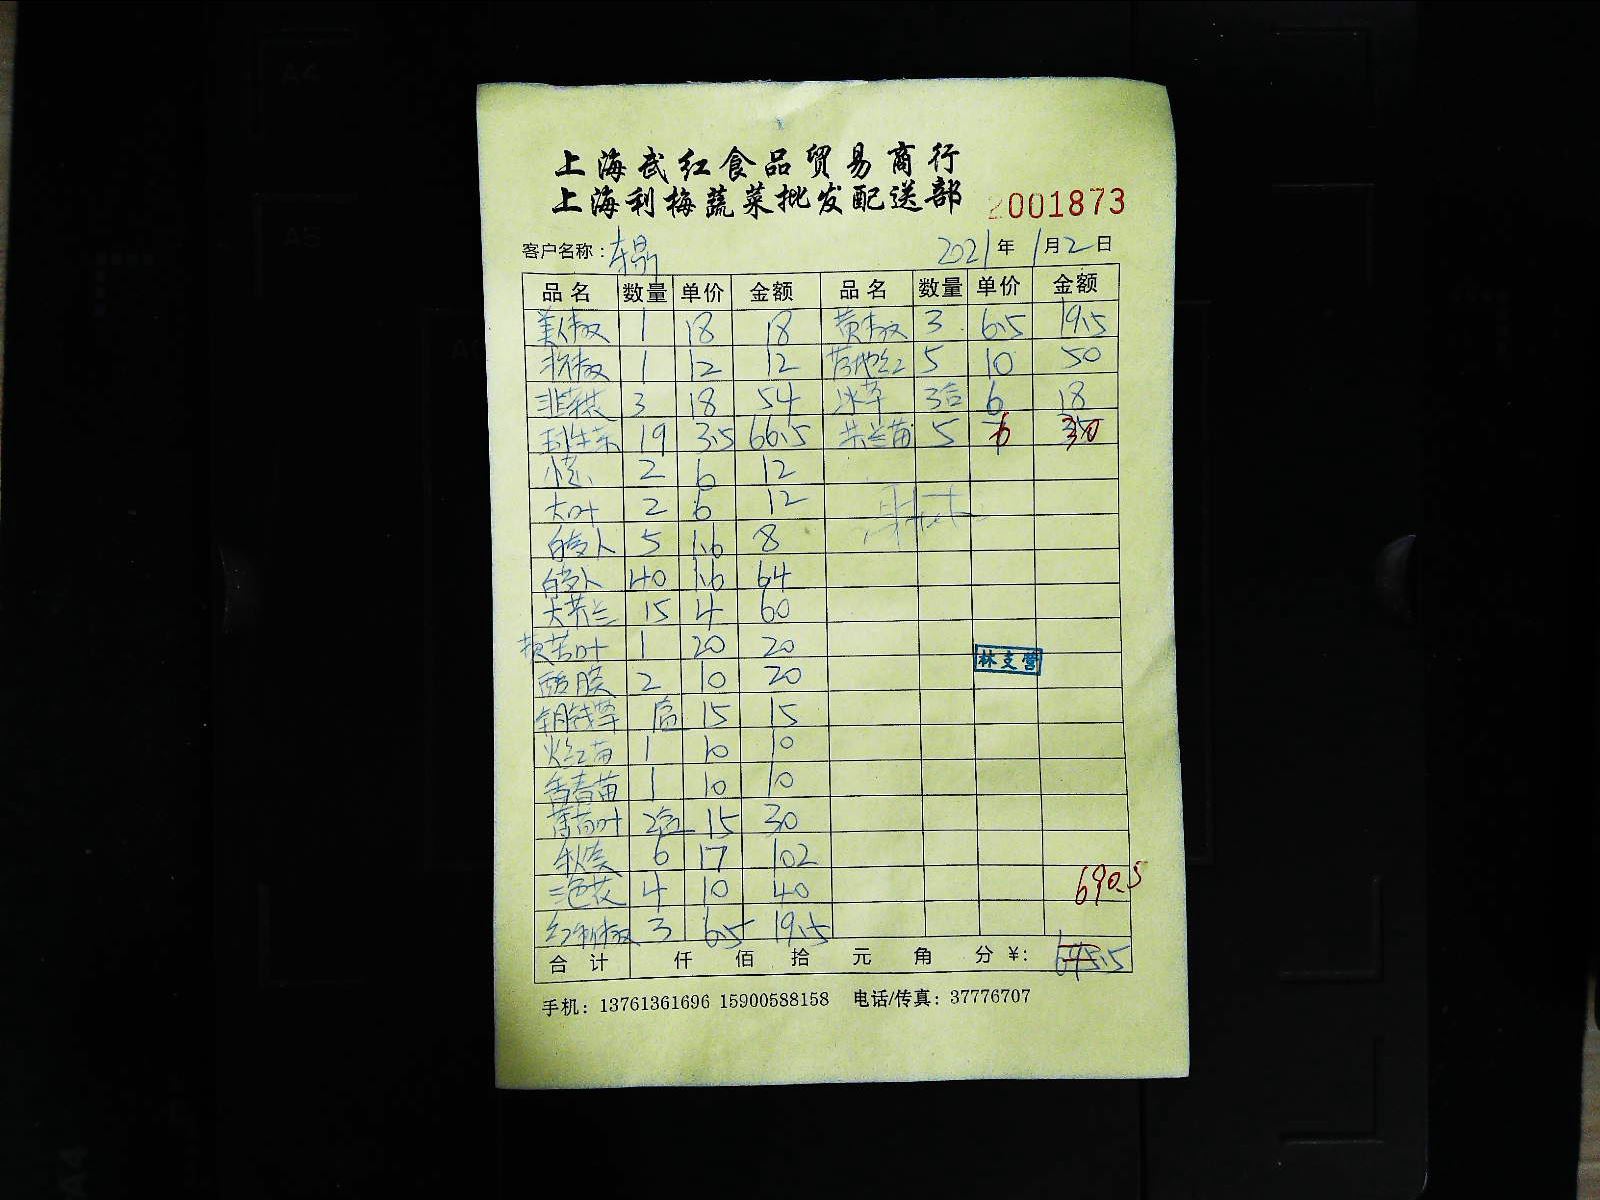 上海武红食品贸易商行
上海利梅蔬菜批发配送部 2001873
客户名称： 2021年1月2日
品名 数量 单价 金额 品名 数量 单价 金额
美人椒 1 18 18 黄椒 3 6.5 19.5
杭椒 1 12 12 5 10 50
韭菜 3 18 54 冰草 3合 6 18
19 3.5 66.5 5 6 30
小葱 2 6 12
大叶 2 6 12
白萝卜 5 1.6 8
白萝卜 40 1.6 64
大芥兰 15 4 60
叶 1 20 20
酸膜 2 10 20
铜钱草 15 15
火红苗 1 10 10
香春苗 1 10 10
薄荷叶 2盒 15 30
秋葵 6 17 102
三色花 4 10 40
690.5
红彩椒 3 6.5 19.5
合计 仟 佰 拾 元 角 分 ¥:
手机：13761361696 15900588158 电话/传真：37776707
林支营